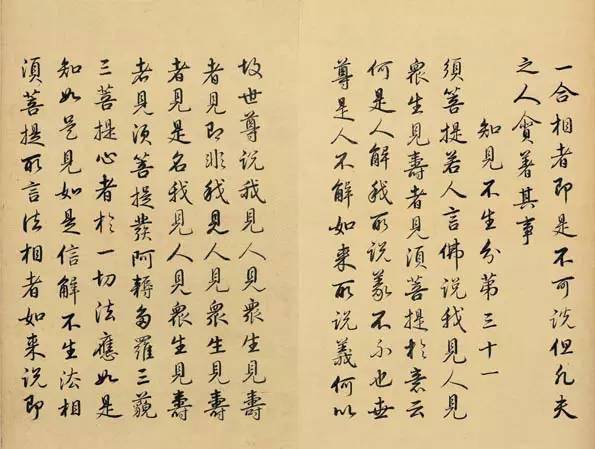 一合相者即是不可說但凡夫
之人貪著其事
知見不生分第三十一
須菩提若人言佛說我見人見
衆生見壽者見須菩提於意云
何是人解我所說義不不也世
尊是人不解如來所說義何以
故世尊說我見人見衆生見壽
者見即非我見人見衆生見壽
者見是名我見人見衆生見壽
者見須菩提發阿耨多羅三藐
三菩提心者於一切法應如是
知如是見如是信解不生法相
須菩提所言法相者如來說即